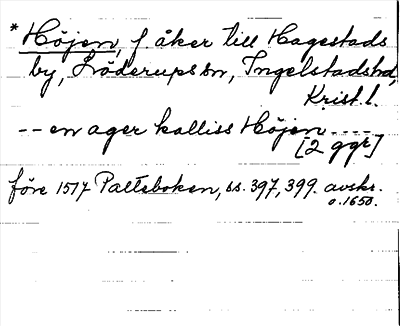 * Höjen, f. åker till Hagestads
by, Löderups sn, Ingelstads hd,
Krist. l.
-- en ager kalliss Höjen ----
[2 ggr]
före 1517 Paltsboken, ss. 397, 399. avskr.
o. 1650.